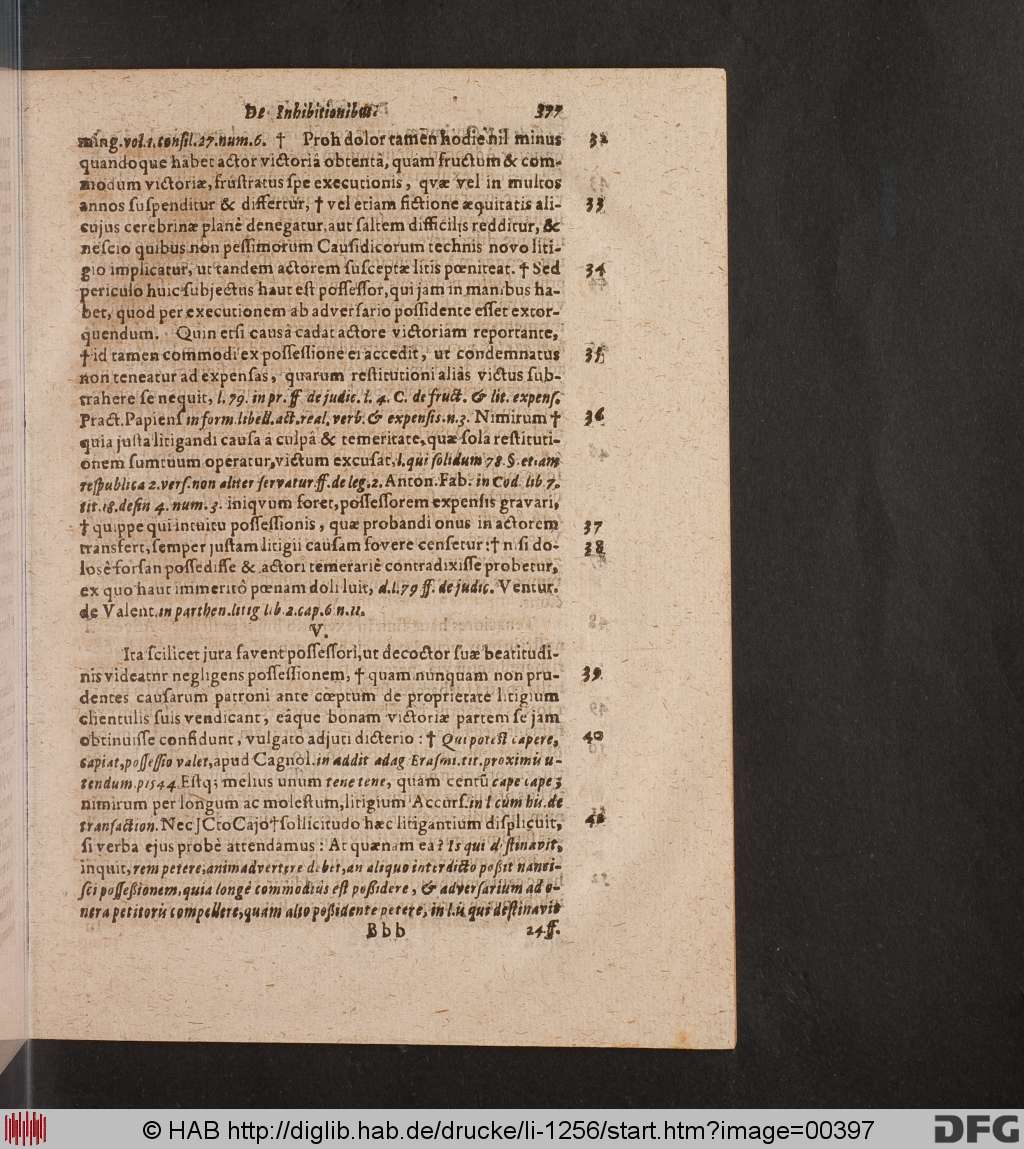 De Inhibitionibus. 377
ming. vol. 1. consil. 27. num. 6. † Proh dolor tamen hodie nil minus 32
quandoque habet actor victoriâ obtentâ, quam fructum & com-
modum victoriæ, frustratus spe executionis, qvæ vel in multos
annos suspenditur & differtur, † vel etiam fictione æquitatis ali- 33
cujus cerebrinæ planè denegatur, aut saltem difficilis redditur, &
nescio quibus non pessimorum Causidicorum technis novo liti-
gio implicatur, ut tandem actorem susceptæ litis pœniteat. † Sed 34
periculo huic subjectus haut est possessor, qui jam in manibus ha-
bet, quod per executionem ab adversario possidente esset extor-
quendum. Quin etsi causâ cadat actore victoriam reportante,
† id tamen commodi ex possessione ei accedit, ut condemnatus 35
non teneatur ad expensas, quarum restitutioni aliàs victus sub-
trahere se nequit, l. 79. in pr. ff de judic. l. 4. C. de fruct. & lit. expens.
Pract. Papiens in form. libell. act. real. verb. & expensis. n. 3. Nimirum † 36
quia justa litigandi causa à culpâ & temeritate, quæ sola restituti-
onem sumtuum operatur, victum excusat, l. qui solidum 78. §. etiam
respublica 2. vers. non aliter servatur. ff. de leg. 2. Anton. Fab. in Cod. lib 7.
tit. 18. defin 4. num. 3. iniqvum foret, possessorem expensis gravari,
† quippe qui intuitu possessionis, quæ probandi onus in actorem 37
transfert, semper justam litigii causam fovere censetur: † nisi do- 38
losè forsan possedisse & actori temerariè contradixisse probetur,
ex quo haut immeritò pœnam doli luit, d. l. 79 ff. de judic. Ventur.
de Valent. in parthen. litig lib. 2. cap. 6 n. 11.
V.
Ita scilicet jura favent possessori, ut decoctor suæ beatitudi-
nis videatnr negligens possessionem, † quam nunquam non pru- 39.
dentes causarum patroni ante cœptum de proprietate litigium
clientulis suis vendicant, eâque bonam victoriæ partem se jam
obtinuisse confidunt, vulgato adjuti dicterio: † Qui potest capere, 40
capiat, possessio valet, apud Cagnol. in addit adag Erasmi. tit. proximû u-
tendum. p 1544. Estq; melius unum tene tene, quàm centũ cape cape;
nimirum per longum ac molestum, litigium Accurs. in l cum hi. de
transaction. Nec JCto Cajo † sollicitudo hæc litigantium displicuit, 41
si verba ejus probè attendamus: At quænam ea? Is qui destinavit,
inquit, rem petere, animadvertere debet, an aliquo interdicto poßit nanci-
sci poßeßionem, quia longè commodiùs est poßidere, & adversarium ad o-
nera petitoris compellere, quàm alio poßidente petere, in l. is qui destinavit
Bbb 24 ff.
© HAB http://diglib.hab.de/drucke/li-1256/start.htm?image=00397
DFG